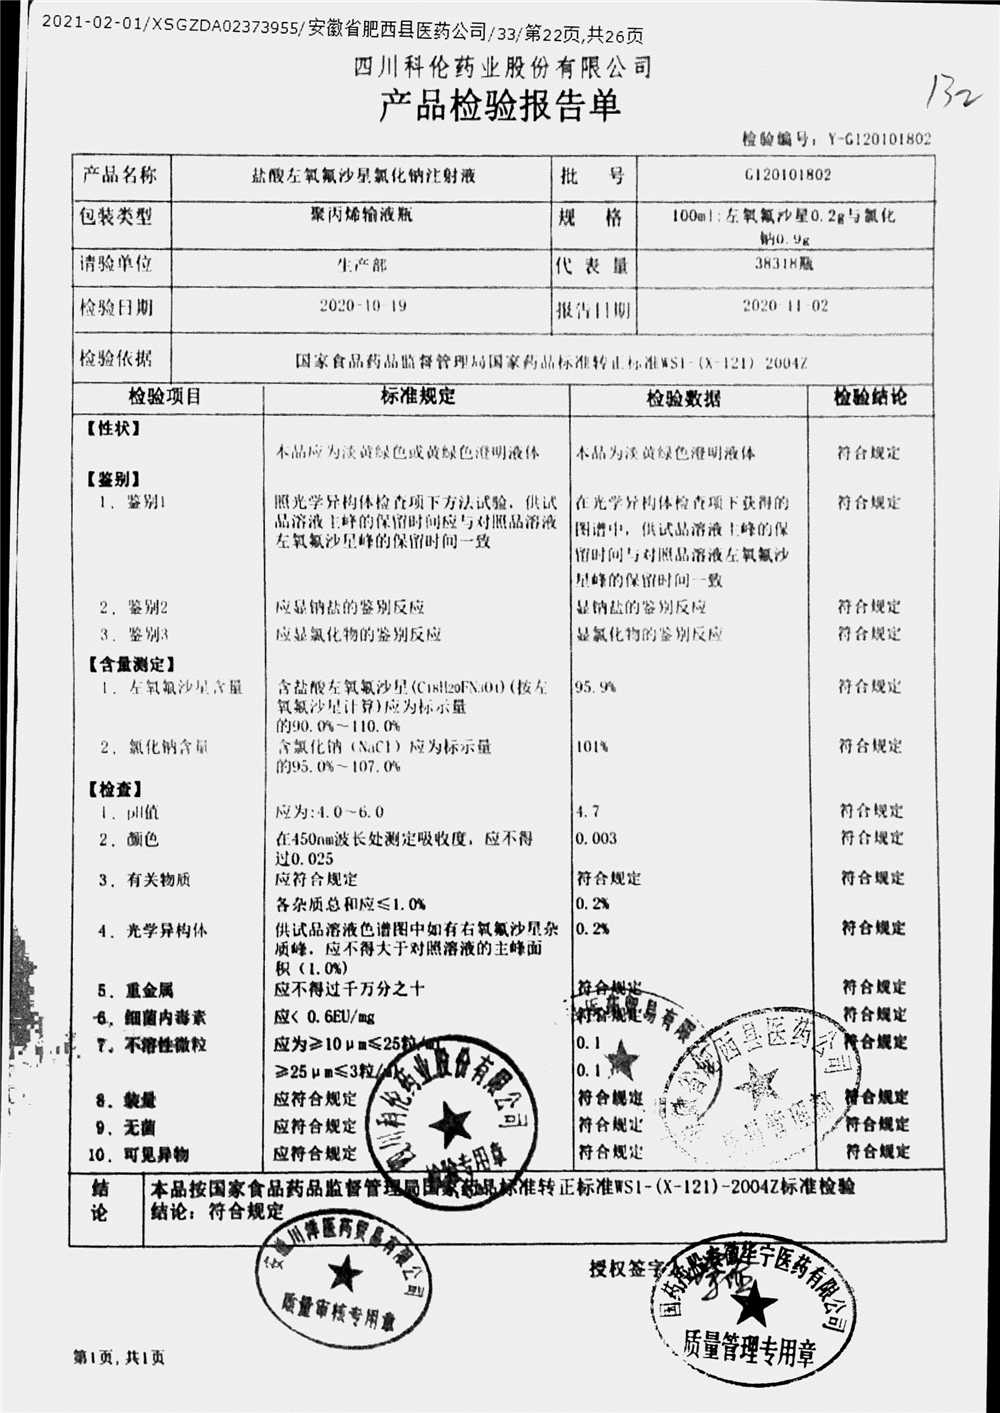 2021-02-01/XSGZDA02373955/安徽省肥西县医药公司/33/第22页,共26页
四川科伦药业股份有限公司
产品检验报告单
132
检验编号: Y-G120101802
产品名称 盐酸左氧氟沙星氯化钠注射液 批 号 G120101802
包装类型 聚丙烯输液瓶 规 格 100ml:左氧氟沙星0.2g与氯化
钠0.9g
请验单位 生产部 代 表 量 38318瓶
检验日期 2020-10-19 报告日期 2020-11-02
检验依据 国家食品药品监督管理局国家药品标准转正标准WS1-(X-121)-2004Z
检验项目 标准规定 检验数据 检验结论
【性状】
本品应为淡黄绿色或黄绿色澄明液体 本品为淡黄绿色澄明液体 符合规定
【鉴别】
1. 鉴别1 照光学异构体检查项下方法试验, 供试 在光学异构体检查项下获得的 符合规定
品溶液主峰的保留时间应与对照品溶液 图谱中, 供试品溶液主峰的保
左氧氟沙星峰的保留时间一致 留时间与对照品溶液左氧氟沙
星峰的保留时间一致
2. 鉴别2 应显钠盐的鉴别反应 显钠盐的鉴别反应 符合规定
3. 鉴别3 应显氯化物的鉴别反应 显氯化物的鉴别反应 符合规定
【含量测定】
1. 左氧氟沙星含量 含盐酸左氧氟沙星(C18H20FN3O4)(按左 95.9% 符合规定
氧氟沙星计算)应为标示量
的90.0%~110.0%
2. 氯化钠含量 含氯化钠(NaCl)应为标示量 101% 符合规定
的95.0%~107.0%
【检查】
1. pH值 应为:4.0~6.0 4.7 符合规定
2. 颜色 在450nm波长处测定吸收度, 应不得 0.003 符合规定
过0.025
3. 有关物质 应符合规定 符合规定 符合规定
各杂质总和应≤1.0% 0.2%
4. 光学异构体 供试品溶液色谱图中如有右氧氟沙星杂 0.2% 符合规定
质峰, 应不得大于对照溶液的主峰面
积(1.0%)
5. 重金属 应不得过千万分之十 符合规定 符合规定
6. 细菌内毒素 应< 0.6EU/mg 符合规定 符合规定
7. 不溶性微粒 应为≥10μm≤25粒/ml 0.1 符合规定
≥25μm≤3粒/ml 0.1
8. 装量 应符合规定 符合规定 符合规定
9. 无菌 应符合规定 符合规定 符合规定
10. 可见异物 应符合规定 符合规定 符合规定
医药贸易有限
安徽省肥西县医药公司
质量管理部
四川科伦药业股份有限公司
检验专用章
结论 本品按国家食品药品监督管理局国家药品标准转正标准WS1-(X-121)-2004Z标准检验
结论: 符合规定
安徽川泽医药贸易有限公司
质量审核专用章
授权签字
国药控股安徽华宁医药有限公司
质量管理专用章
第1页, 共1页